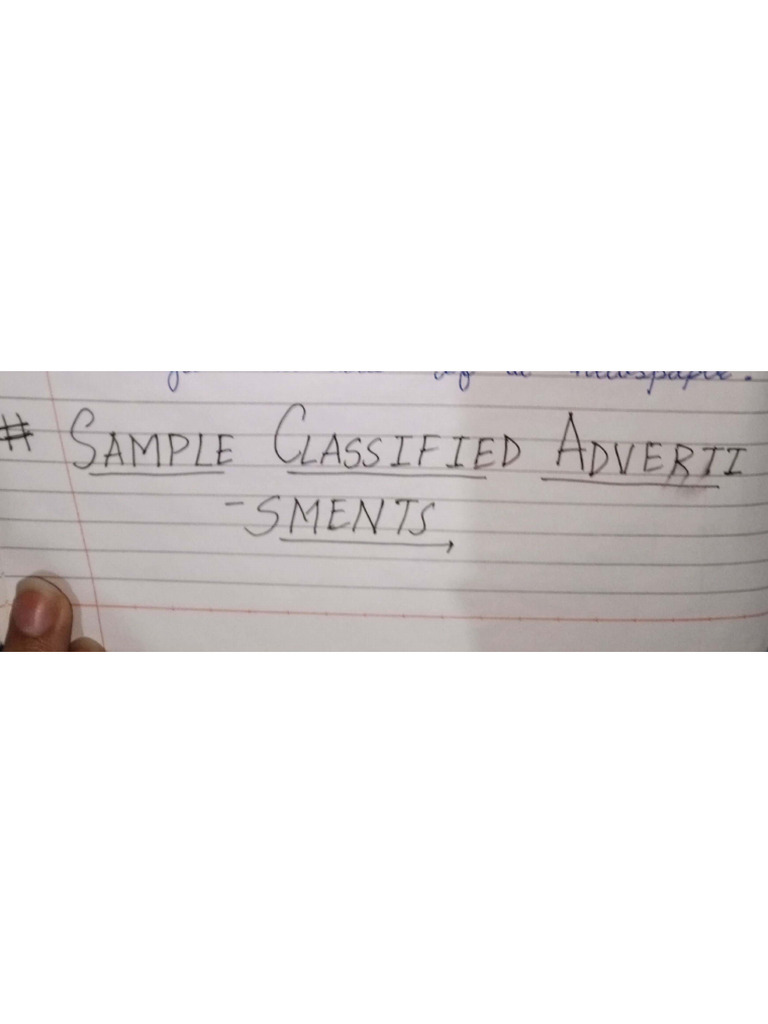 newspaper.
# SAMPLE CLASSIFIED ADVERTI
-SMENTS